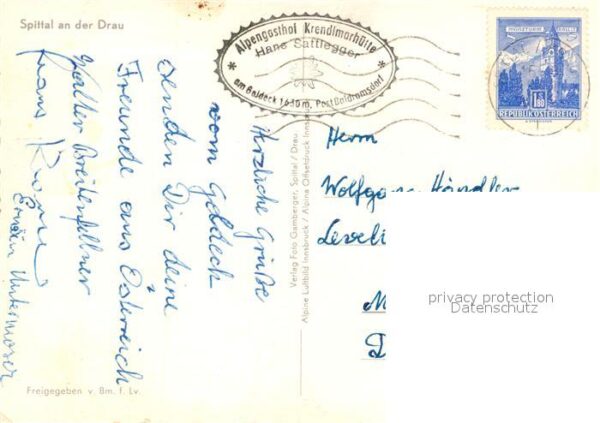 Spittal an der Drau
Alpengasthof Krendlmarhütte
Hans Sattlegger
am Goldeck 1650 m, Post
MÜNZTURM HALL
S 1.80
REPUBLIK ÖSTERREICH
Herzliche Grüße
vom Goldeck
senden Dir deine
Freunde aus Österreich
Walter Breitenfellner
Franz
Erwin Untermoser
Verlag Foto Gamberger, Spittal / Drau
Alpine Luftbild Innsbruck / Alpina Offsetdruck Innsbruck
Herrn
Wolfgang Händler
M
D
privacy protection
Datenschutz
Freigegeben v. Bm. f. Lv.